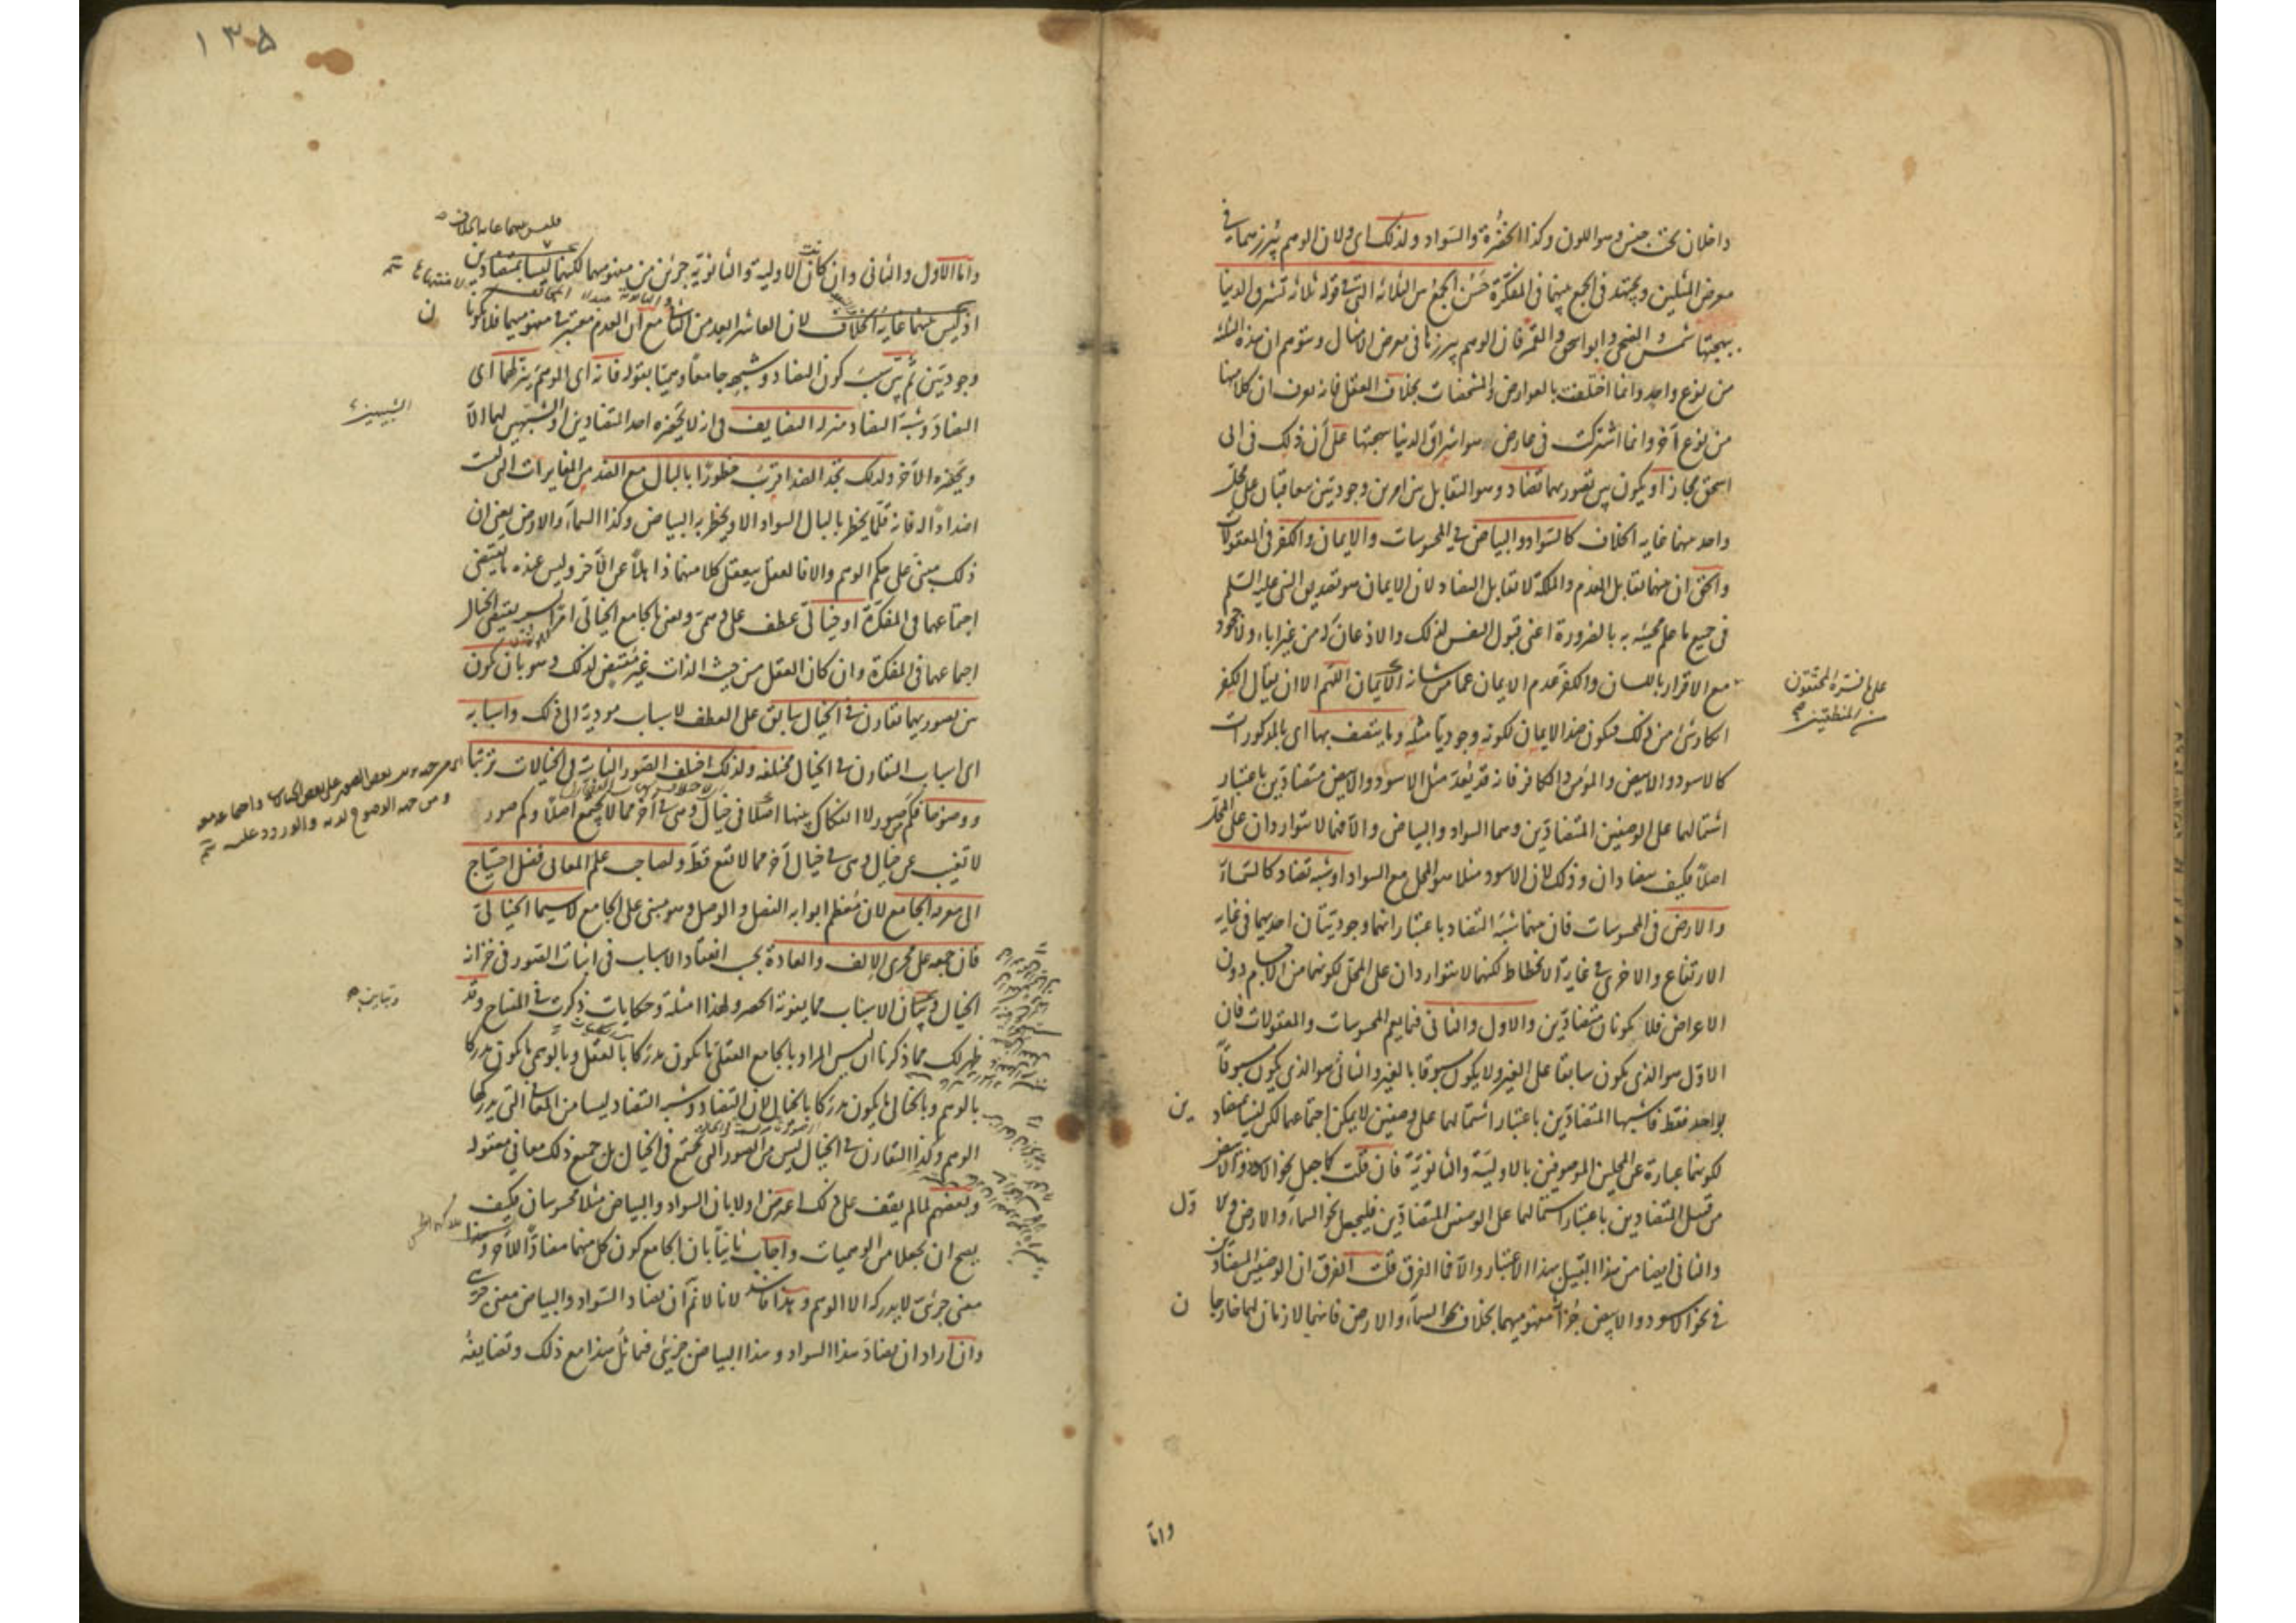 داخلان تحت جنس وهو اللون وكذا الخضرة والسواد ولذلك اى ولان الوهم يبرزهما في
معرض المثلين ويجتهد في الجمع بينهما في المفكرة حسن الجمع بين الثلاثة التي في قوله ثلاثة تشرق الدنيا
ببهجتها شمس الضحى وابو اسحق والقمر فان الوهم يبرزها في معرض الامثال ويتوهم ان هذه الثلثة
من نوع واحد وانما اختلفت بالعوارض والمشخصات بخلاف العقل فانه يعرف ان كلا منها
من نوع آخر وانما اشتركت في عارض هو اشراق الدنيا ببهجتها على أن ذلك في ابى
اسحق مجاز او يكون بين تصوريهما تضاد وهو التقابل بين امرين وجوديين يتعاقبان على محل
واحد بينهما غاية الخلاف كالسواد والبياض في المحسوسات والايمان والكفر في المعقولات
والحق ان بينهما تقابل العدم والملكة لا تقابل التضاد لان الايمان هو تصديق النبي عليه السلم
في جميع ما علم مجيئه به بالضرورة اعنى قبول النفس لذلك والاذعان له من غير اباء ولا جحود
مع الاقرار باللسان والكفر عدم الايمان عما من شانه الايمان اللهم الا ان يقال الكفر
على ما فسره المحققون
من المنطقيين
انكار شئ من ذلك فيكون ضد الايمان لكونه وجوديا مثله وما يتصف بها اى بالمذكورات
كالاسود والابيض والمؤمن والكافر فانه قد يعد مثل الاسود والابيض متضادين باعتبار
اشتمالهما على الوصفين المتضادين وهما السواد والبياض والا فهما لا يتواردان على المحل
اصلا فكيف يتضادان وذلك لان الاسود مثلا هو المحل مع السواد او شبه تضاد كالسماء
والارض في المحسوسات فان بينهما شبه التضاد باعتبار انهما وجوديتان احديهما في غاية
الارتفاع والاخرى في غاية الانحطاط لكنهما لا يتواردان على المحل لكونهما من الاجسام دون
الاعراض فلا يكونان متضادين والاول والثاني فيما يعم المحسوسات والمعقولات فان
الاول هو الذي يكون سابقا على الغير ولا يكون مسبوقا بالغير والثاني هو الذي يكون مسبوقا
بواحد فقط فاشبها المتضادين باعتبار اشتمالهما على وصفين لا يمكن اجتماعهما لكن ليسا بمتضادين
لكونهما عبارة عن المحلين الموصوفين بالاولية والثانوية فان قلت كما جعل نحو الاسود والابيض
من قبيل المتضادين باعتبار اشتمالهما على الوصفين المتضادين فليجعل نحو السماء والارض والاول
والثاني ايضا من هذا القبيل بهذا الاعتبار والا فما الفرق قلت الفرق ان الوصفين المتضادين
في نحو الاسود والابيض جزآ مفهوميهما بخلاف نحو السماء والارض فانهما لازمان لهما خارجان
واما
١٣٥
فليس بينهما غاية الخلاف
واما الاول والثاني وان كانت الاولية والثانوية جزئين من مفهوميهما لكنهما ليسا بمتضادين
اذ ليس بينهما غاية الخلاف لان العاشر ابعد من الثاني مع ان العدم معتبر في مفهوميهما فلا يكونان
وجوديين ثم بين سبب كون التضاد وشبهه جامعا وهميا بقوله فانه اى الوهم ينزلهما اى
التضاد وشبه التضاد منزلة التضايف في انه لا يحضره احد المتضادين او الشبيهين بهما الا
الشبيهين
ويحضره الآخر ولذلك تجد الضد اقرب خطورا بالبال مع الضد من المغايرات التي ليست
اضدادا له فانه قلما يخطر بالبال السواد الا ويخطر به البياض وكذا السماء والارض يعنى ان
ذلك مبنى على حكم الوهم والا فالعقل يتعقل كلا منهما ذاهلا عن الآخر وليس عنده ما يقتضى
اجتماعهما في المفكرة او خيالى عطف على وهمى ونعنى بالجامع الخيالى امرا بسببه يقتضى الخيال
اجتماعهما في المفكرة وان كان العقل من حيث الذات غير مقتض لذلك وهو بان يكون
بين تصوريهما تقارن في الخيال سابق على العطف لاسباب مودية الى ذلك واسبابه
اى اسباب التقارن في الخيال مختلفة ولذلك اختلف الصور الثابتة في الخيالات ترتبا
ووضوحا فكم صور لا انفكاك بينها اصلا في خيال وهى في آخر مما لا يجتمع اصلا وكم صور
لا تغيب عن خيال وهى في خيال آخر مما لا تقع قط ولصاحب علم المعانى فضل احتياج
الى معرفة الجامع لان معظم ابوابه الفصل والوصل وهو مبنى على الجامع لا سيما الخيالى
فان جمعه على مجرى الالف والعادة بحسب انعقاد الاسباب في اثبات الصور في خزانة
الخيال وتباين الاسباب مما يفوته الحصر ولهذا امثلة وحكايات ذكرت في المفتاح وقد
وتباين
ظهر لك مما ذكرنا ان ليس المراد بالجامع العقلى ما يكون مدركا بالعقل وبالوهمى ما يكون مدركا
بالوهم وبالخيالى ما يكون مدركا بالخيال لان التضاد وشبه التضاد ليسا من المعانى التي يدركها
الوهم وكذا التقارن في الخيال ليس من الصور التي تجتمع في الخيال بل جميع ذلك معانى معقولة
وبعضهم لما لم يقف على ذلك اعترض اولا بان السواد والبياض مثلا محسوسان فكيف
يصح ان يجعلا من الوهميات واجاب ثانيا بان الجامع كون كل منهما مضادا للآخر وهذا
معنى جزئى لا يدركه الا الوهم وهذا فاسد لانا لا نم أن تضاد السواد والبياض معنى جزئى
وان اراد ان تضاد هذا السواد وهذا البياض جزئى فتماثل هذا مع ذلك وتضايفه